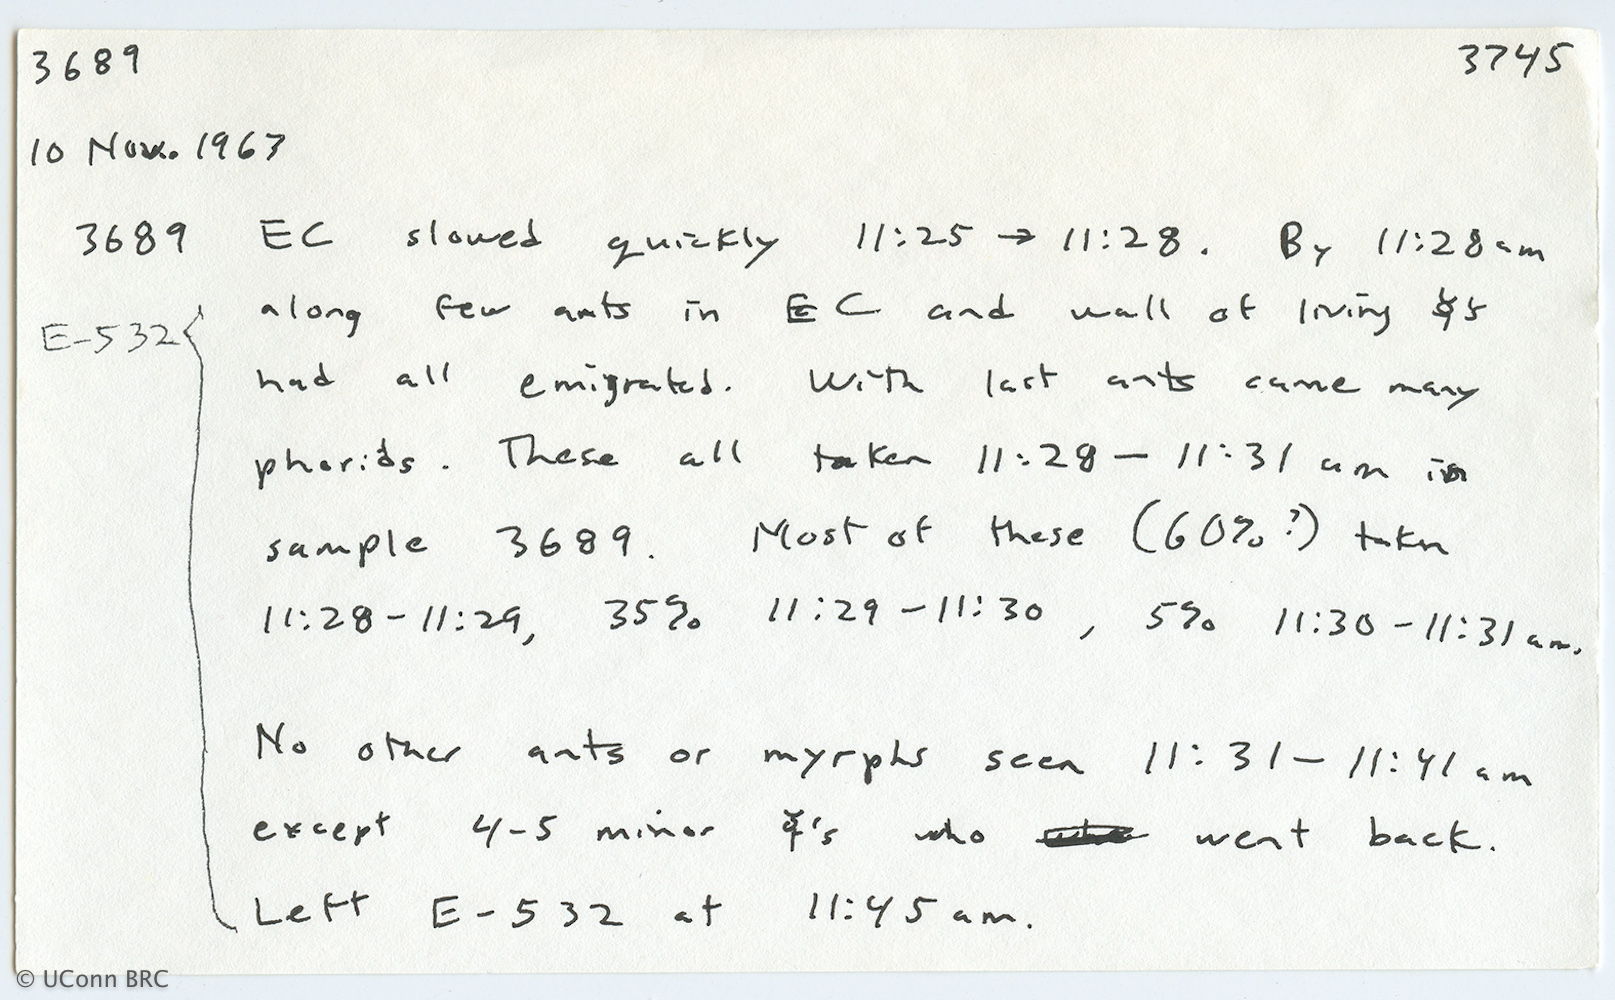 3689 3745
10 Nov. 1967
3689 EC slowed quickly 11:25 → 11:28. By 11:28 am
E-532 along few ants in EC and wall of living ☿'s
had all emigrated. With last ants came many
phorids. These all taken 11:28 – 11:31 am in
sample 3689. Most of these (60%?) taken
11:28 – 11:29, 35% 11:29 – 11:30, 5% 11:30 – 11:31 am.
No other ants or myrphs seen 11:31 – 11:41 am
except 4-5 minor ☿'s who went back.
Left E-532 at 11:45 am.
© UConn BRC